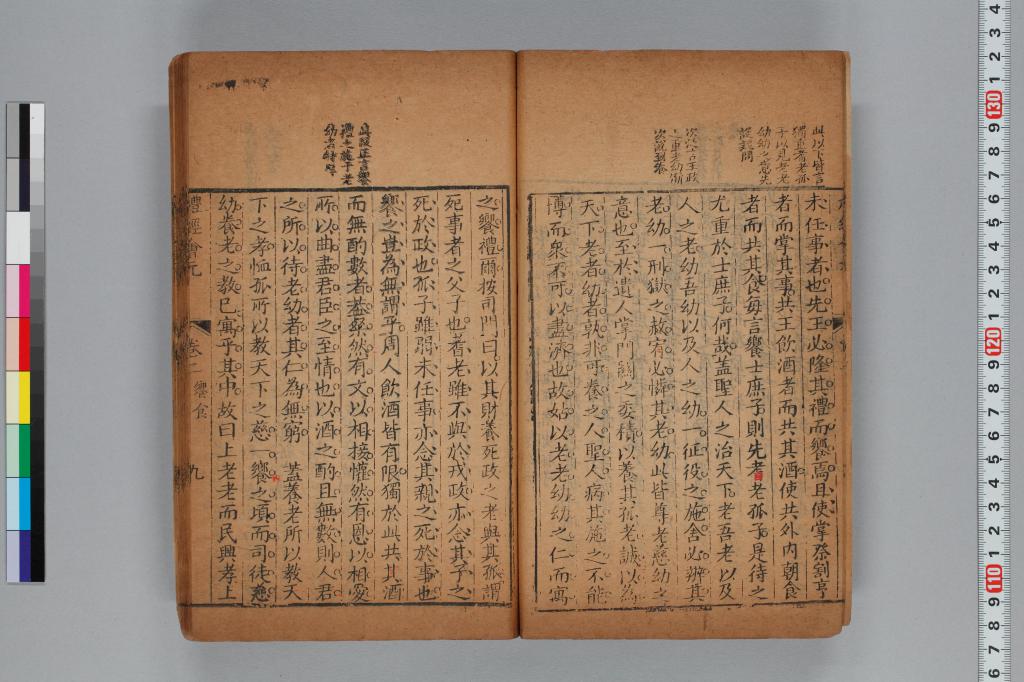 此以下皆言
獨重耆老孤
子以見老老
幼幼之意先
設疑問
未任事者也先王必隆其禮而饗焉且使掌祭割亨
者而掌其事共王飲酒者而共其酒使共外內朝食
者而共其食每言饗士庶子則先耆老孤子是待之
尤重於士庶子何哉蓋聖人之治天下老吾老以及
人之老幼吾幼以及人之幼一征役之施舍必辨其
老幼一刑獄之赦宥必憐其老幼此皆尊老慈幼之
意也至於遺人掌門關之委積以養其孤老誠以為
天下老者幼者孰非可養之人聖人病其施之不能
博而衆不可以盡濟也故姑以老老幼幼之仁而寓
之饗禮爾按司門曰以其財養死政之老與其孤謂
死事者之父子也耆老雖不與於戎政亦念其子之
死於政也孤子雖弱未任事亦念其親之死於事也
饗之豈為無謂乎周人飲酒皆有限獨於此共其酒
而無酌數者蓋粲然有文以相接懽然有恩以相愛
所以曲盡君臣之至情也以酒之酌且無數則人君
之所以待老幼者其仁為無窮 蓋養老所以教天
下之孝恤孤所以教天下之慈一饗之頃而司徒慈
幼養老之教已寓乎其中故曰上老老而民興孝上
禮經會元
卷二
饗食
九